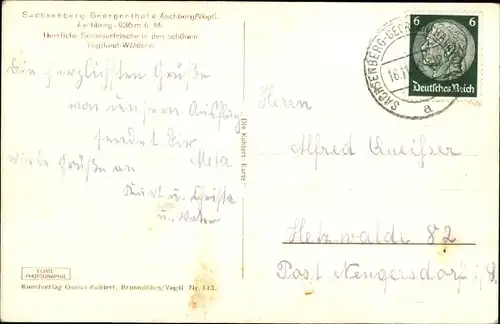 Sachsenberg-Georgenthal a. Aschberg/Vogtl.
Aschberg - 936 m ü. M.
Herrliche Sommerfrische in den schönen
Vogtland-Wäldern.
Die herzlichsten Grüße
von unsern Ausflug
sendet Dir
Meta
viele Grüße an
Kurt u. Christa
u.
ECHTE
PHOTOGRAPHIE
Kunstverlag Gustav Köhlert, Brunndöbra/Vogtl. Nr. 113.
Die Köhlert-Karte
SACHSENBERG-GEORG
16.11
a
6 6
Deutsches Reich
Herrn
Alfred Kneißer
Hetzwalde 82
Post Neugersdorf i. S.